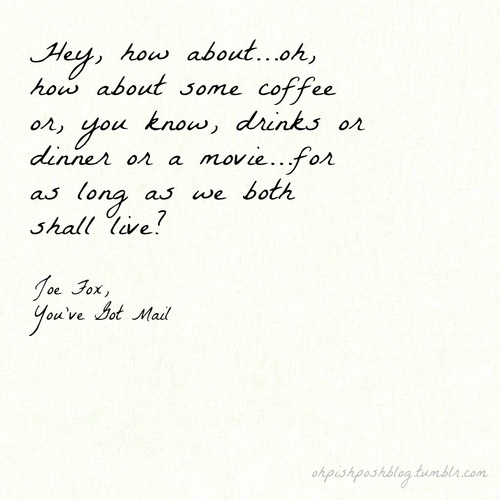 Hey, how about...oh,
how about some coffee
or, you know, drinks or
dinner or a movie...for
as long as we both
shall live?
Joe Fox,
You've Got Mail
ohpishposhblog.tumblr.com